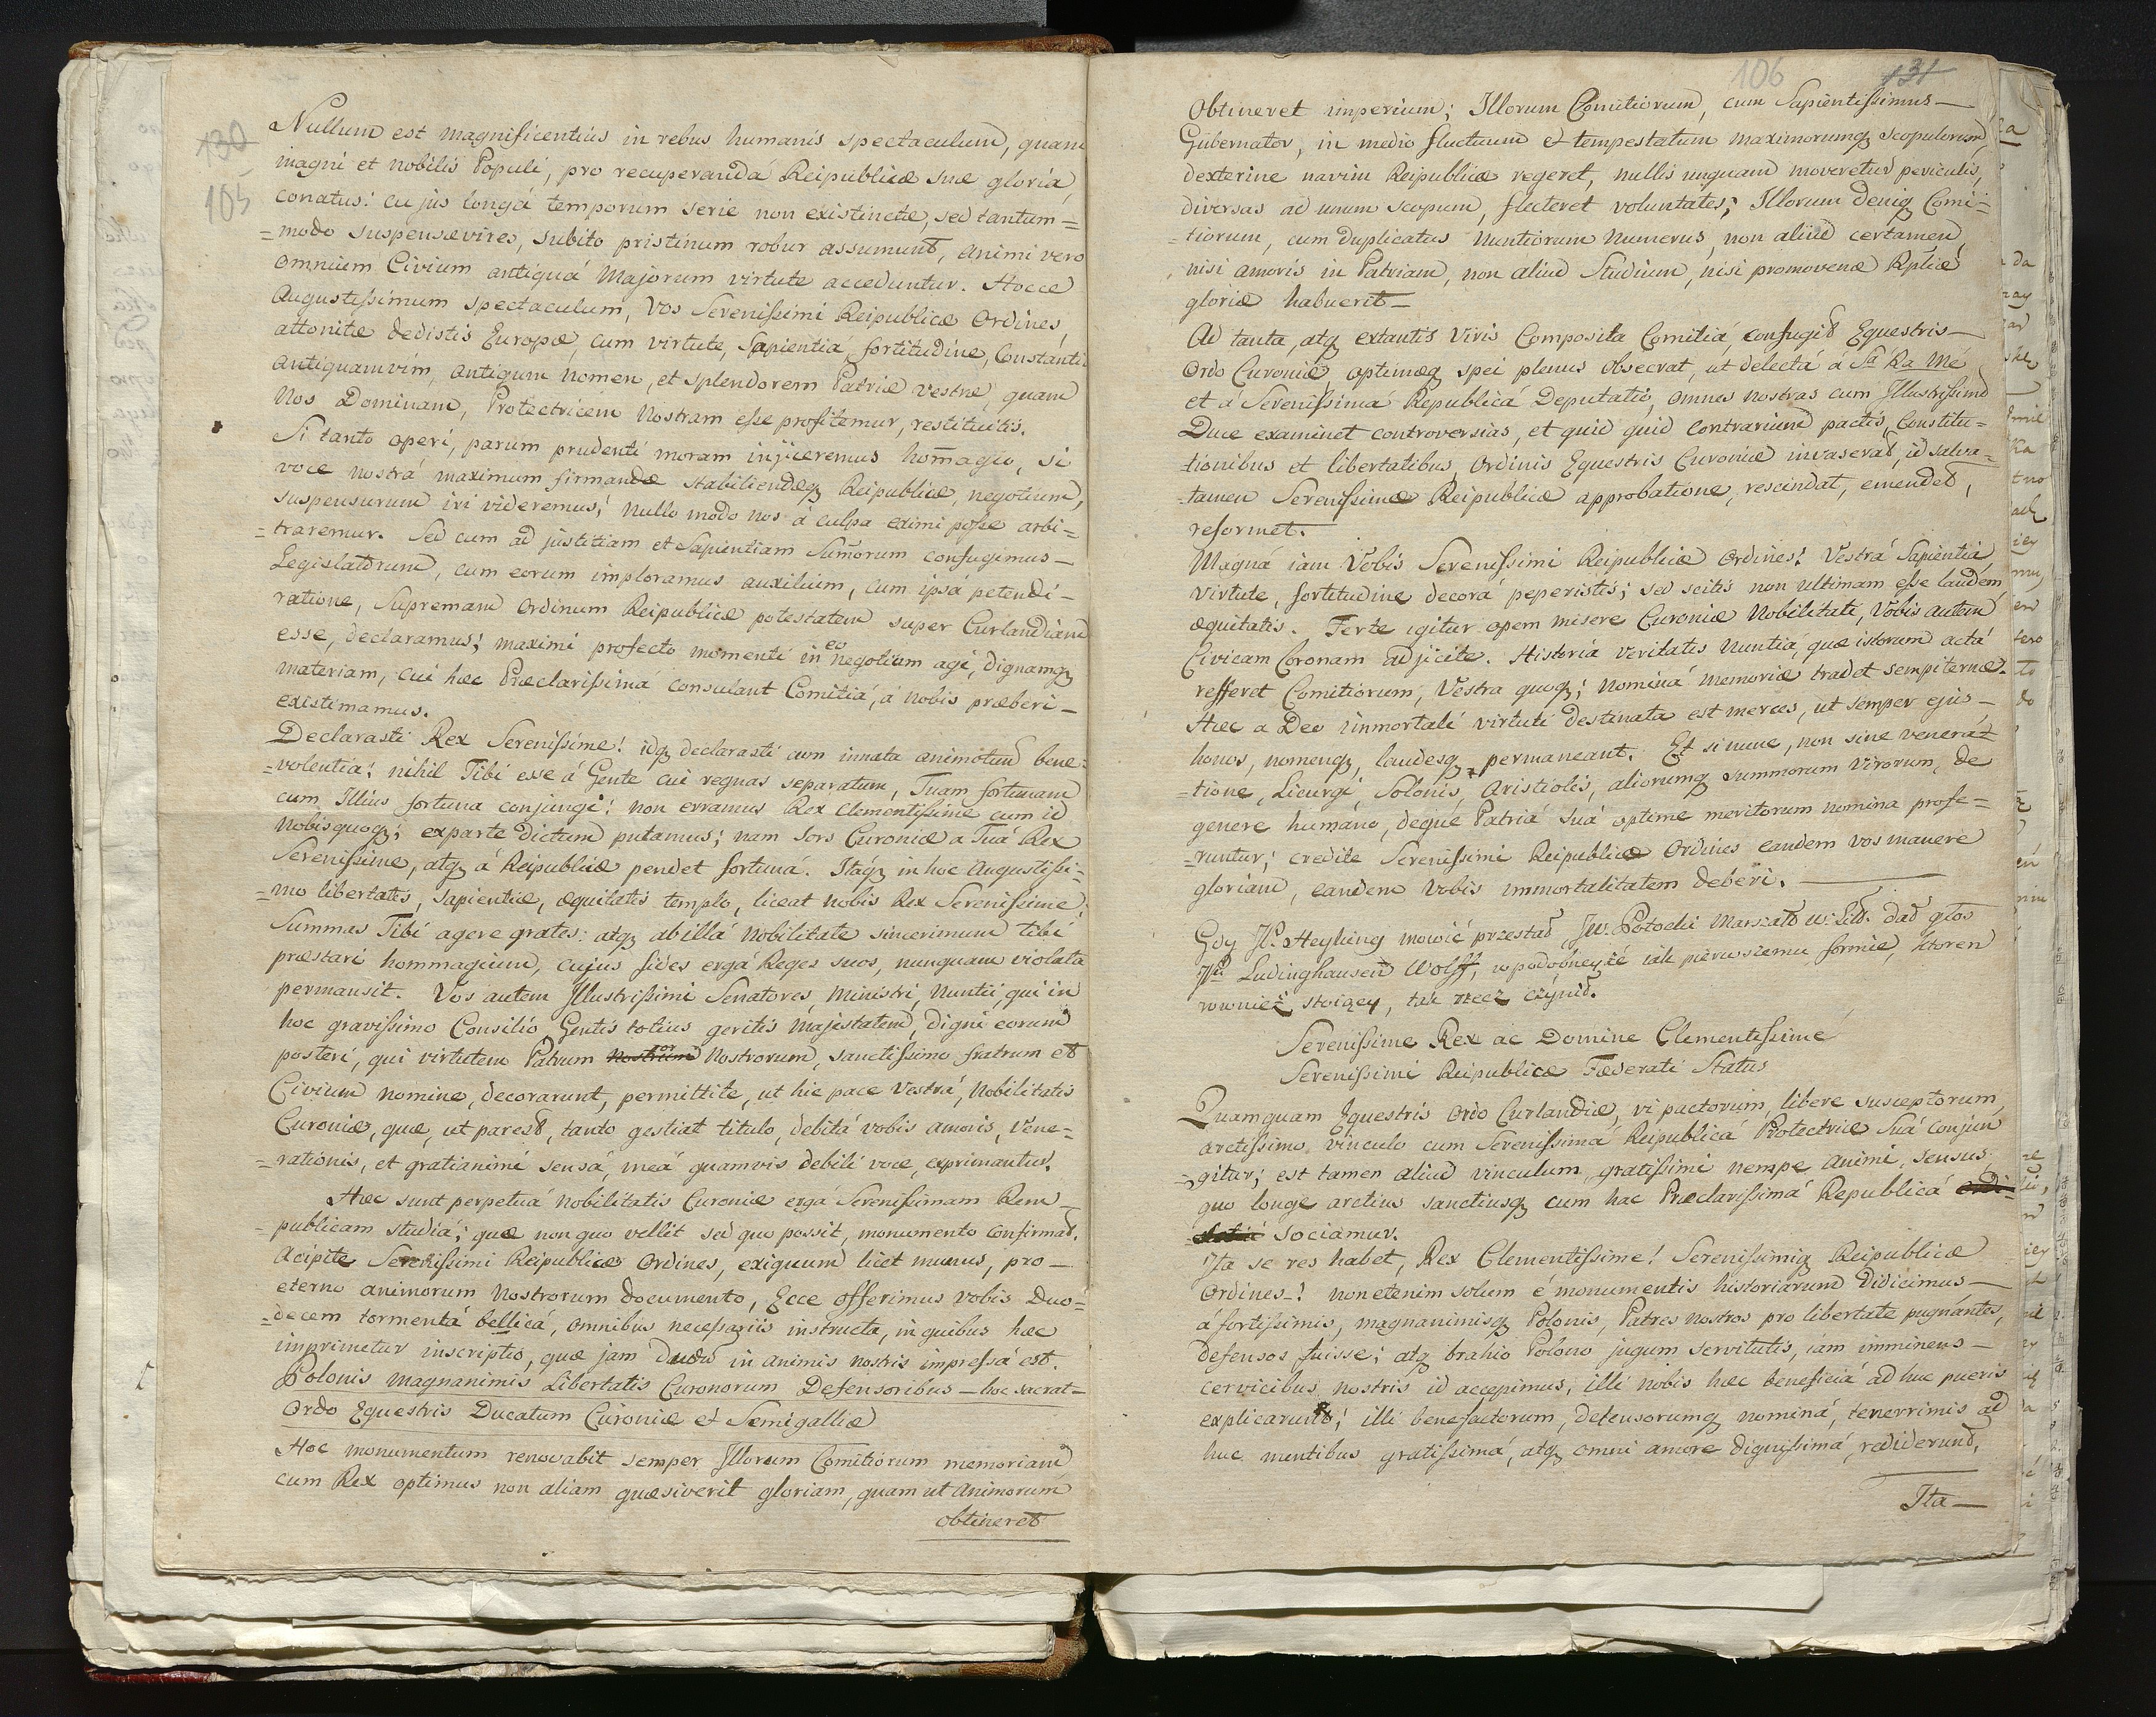 130
105
Nullum est magnificentius in rebus humanis spectaculum, quam
magni et nobilis Populi, pro recuperandá Reipublicæ suæ gloriá,
conatus: cujus longá temporum serie non existinctæ, sed tantum=
=modo suspensævires, subito pristinum robur assumunt, animi vero
omnium Civium antiquá Majorum virtute acceduntur. Hocce
Augustissimum spectaculum, Vos Serenissimi Reipublicæ Ordines,
attonitæ dedistis Europæ, cum virtute, Sapientiá, fortitudine, Constánti
antiquamvim, antiqum nomen, et splendorem Patriæ vestræ, quam
Nos Dominam, Protectricem Nostram esse profitemur, restituitis.
Si tanto operi, parum prudenti moram injiceremus hom̄agio, si
voce nostrá maximum firmandæ stabiliendæq Reipublicæ, negotium,
suspensurum iri videremus; Nullo modo nos á culpa eximi posse arbi=
=traremur. Sed cum ad justitiam et Sapientiam Sum̄orum confugimus—
Legislatorum, cum eorum imploramus auxilium, cum ipsá petendi—
ratione, Supremam Ordinum Reipublicæ potestatem super Curlandiam
esse, declaramus; maximi profecto momenti in eo negotium agi, dignamq
materiam, cui hæc Præclarissimá consulant Comitiá, á nobis præberi—
existimamus.
Declarasti Rex Serenissime! idq declarasti non innata animotuo bene=
=volentia: nihil Tibi esse á Gente cui regnas separatum, Tuam fortunam
cum Illius fortuna conjungi: non erramus Rex Clementissime cum id
Nobisquoq; exparte dictum putamus; nam sors Curoniæ a Tuá Rex
Serenissime, atq á Reipublicæ pendet fortuná. Itáq in hoc Augustissi=
=mo libertatis, sapientiæ, æquitatis templo, liceat nobis Rex Serenissime,
Summas Tibi agere grates: atq ab illá Nobilitate sincerimum tibi
præstari hommagium, cujus fides ergá Reges suos, nunquam violata
permansit. Vos autem Illustrissimi Senatores, Ministri, Nuntii, qui in
hoc gravissimo Consilio Gentis totius geritis Majestatem, digni eorum
posteri, qui virtutem Patrum nostrum Nostrorum, sanctissimo fratrum et
Civium nomine, decorarunt, permittite, ut hic pace Vestrá, Nobilitatis
Curoniæ, quæ, ut parest, tanto gestiat titulo, debitá vobis amoris, Vene=
=rationis, et gratianimi sensá, meá quamvis debili voce, exprimantur.
Hæc sunt perpetuá Nobilitatis Curoniæ ergá Serenissimam Rem—
=publicam studiá; quæ non quo vellit sed quo possit, monumento confirmat.
Acipite Serenissimi Reipublicæ Ordines, exiguum licet munus, pro—
eterno animorum Nostrorum documento, Ecce offerimus vobis Duo=
=decem tormentá bellicá, omnibus necessariis instructa, in quibus hæc
imprimetur inscriptio, quæ jam dudu in animis nostris impressá est.
Polonis magnanimis Libertatis Curonorum Defensoribus — hoc sacrat=
Ordo Equestris Ducatum Curoniæ et Semigalliæ
Hoc monumentum renovabit semper Illorum Comitiorum memoriam
cum Rex optimus non aliam quæsiverit gloriam, quam ut animorum
obtineret
106
131
Obtineret imperium; Illorum Comitiorum, cum Sapientissimus—
Gubernator, in medio fluctuum et tempestatum maximorumq scopulorum,
dexterine navim Reipublicæ regeret, nullis unquam moveretur periculis,
diversas ad unum scopum, flecteret voluntates; Illorum deniq Comi=
=tiorum, cum duplicatus Nuntiorum Numerus, non aliud certamen,
nisi amoris in Patriam, non aliud Studium, nisi promovenæ Rplicæ
gloriæ habuerit—
Ad tanta, atq extantis Viris Composita Comitiá, confugit Equestris—
Ordo Curoniæ, optimæq spei plenus obsecrat, ut delectá á Sa Ra Me
et á Serenissimá Republicá Deputatio, omnes nostras cum Illustrissimo
Duce examinet controversias, et quid quid contrarium pactis, Constitu=
=tionibus et libertatibus Ordinis Equestris Curoniæ invaserat, id salva=
=tamen Serenissimæ Reipublicæ approbatione, rescindat, emendet,
reformet.
Magná iam Vobis Serenissimi Reipublicæ Ordines! Vestrá Sapientiá,
virtute, fortitudine decorá peperistis; sed scitis non ultimam esse laudem,
æquitatis. Ferte igitur opem misere Curoniæ Nobilitati, Vobis autem
Civicam Coronam adjicite. Historiá veritatis Nuntia, quæ istorum actá
refferet Comitiorum, Vestra quoq; Nominá memoriæ tradet sempiternæ.
Hæc a Deo immortali virtuti destinata est merces, ut semper ejus—
honos, nomenq, laudesq permaneant. Et si nunc, non sine venerá=
=tione, Licurgi, Solonis, Aristiolis, aliorumq summorum virorum, de
genere humáno, deque Patriá Suá optime meritorum nomina profe=
=runtur; credite Serenissimi Reipublicæ Ordines eandem vos manere
gloriam, eandem Vobis immortalitatem deberi.
Gdy JP. Heyking mowić przestał, JW. Potocki Marszałł W: Litt. dał głos
JPu Ludinghausen Wolff, w podobneyże iak pierwszemu formie, ktoren
rownież stoiący, tak rzecz czynił.
Serenissime Rex ac Domine Clementissime
Serenissimi Reipublicæ Fæderati Status
Quamquam Equestris Ordo Curlandiæ, vi pactorum, libere susceptorum,
arctissimo vinculo cum Serenissimá Republicá Protectrice Suá conjun
=gitur; est tamen aliud vinculum, gratissimi nempe animi, sensus,
quo longe arctius sanctiusq cum hac Præclarissimá Republicá
sociamur.
Ita se res habet, Rex Clementissime! Serenissimiq Reipublicæ
Ordines! non etenim solum é monumentis historiarum didicimus—
á fortissimis, magnanimisq Polonis, Patres nostros pro libertate pugnántes,
defensos fuisse; atq brahio Polono jugum servitutis, iám imminens—
cervicibus nostris id accepimus, illi nobis hæc beneficiá ad huc pueris
explicarunt; illi benefactorum, defensorumq nominá, tenerrimis ad
huc mentibus gratissimá, atq omni amore dignissimá, rediderunt,
Ita—